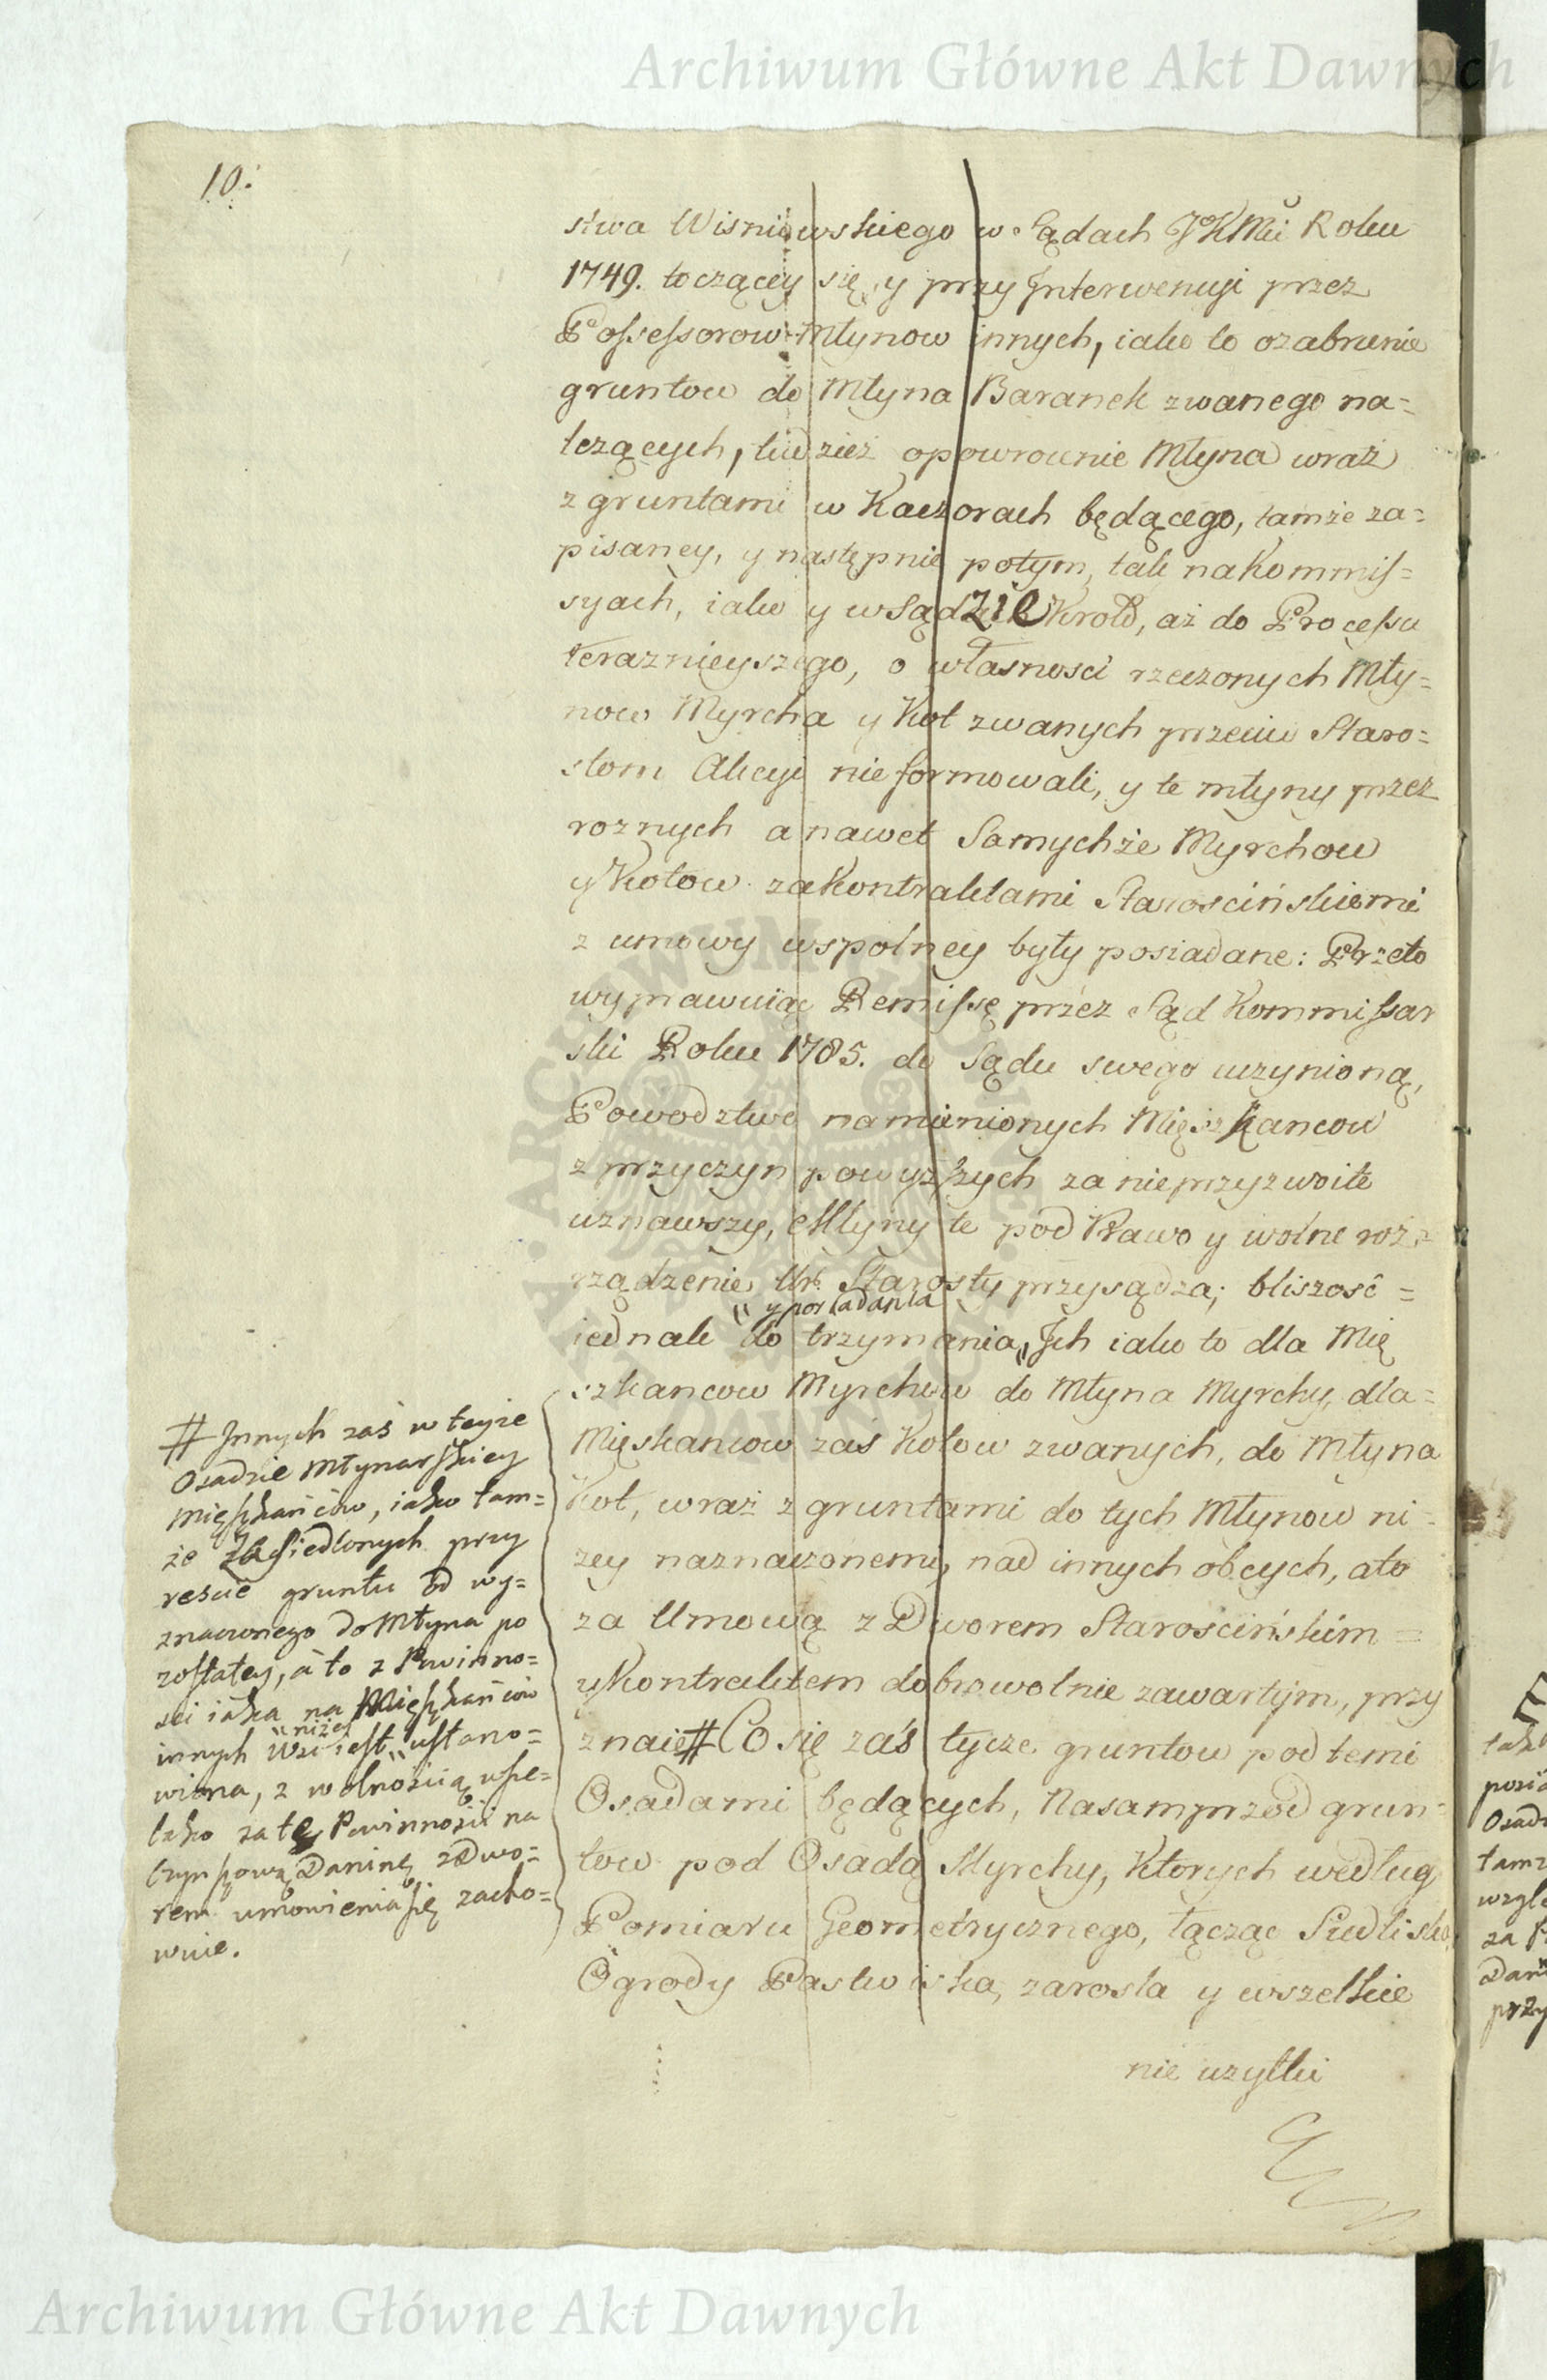 Archiwum Główne Akt Dawnych
10.
stwa Wisniowskiego w Sądach JKMci Roku
1749. toczącey się, y przy Interwencyi przez
Possessorow Młynow innych, iako to o zabranie
gruntow do Młyna Baranek zwanego na=
lezących, tudziez o powrocenie Młyna wraz
z gruntami w Kaczorach będącego, tamże za=
pisaney, y następnie potym, tak na Kommis=
syach, iako y w Sądzie Krold, aż do Processu
teraznieyszego, o własnosci rzeczonych Mły=
now Myrcha y Kot zwanych przeciw Staro=
stom Akcyi nie formowali, y te młyny przez
roznych a nawet Samychże Myrchow
y Kotow za Kontraktami Starościńskiemi
z umowy wspolney były posiadane: Przeto
wyprawuiąc Remissę przez Sąd Kommissar
ski Roku 1785. do Sądu swego uczynioną,
Powodztwo namienionych Mięszkancow
z przyczyn powyższych za nieprzyzwoite
uznawszy, Młyny te pod Prawo y wolne roz=
rządzenie Ur. Starosty przysądza; bliszość =
" y posiadania
iednak do trzymania" Ich iako to dla Mię
szkancow Myrchow do Młyna Myrchy, dla=
Mięskancow zaś Kotow zwanych, do Młyna
Kot, wraz z gruntami do tych Młynow ni=
zey naznaczonemi, nad innych obcych, a to
za Umową z Dworem Starościńskim =
y Kontraktem dobrowolnie zawartym, przy
znaie # Co się zaś tycze gruntow pod temi
Osadami będących, Nasamprzod grun=
tow pod Osadą Myrchy, Ktorych według
Pomiaru Geometrycznego, łącząc Siedlisko
Ogrody Pastwiska, zarosla y wszelkie
nie uzytki
# Innych zaś w teyże
Osadzie Młynarskiey
Mięszkańców, iako tam=
że Zasiedlonych przy
reszcie gruntu od wy=
znaczonego do Młyna po
zostałey, a to z Powinno=
sci iaka na Mięszkańców
" niżey
innych Wsi iest" ustano=
wiona, z wolnością wsze=
lako za tę Powinności na
czynszową Daninę z Dwo=
rem umowienia się zacho=
wuie.
posia
Osad
tamż
wzglę
za P
Dan
przy
Archiwum Główne Akt Dawnych